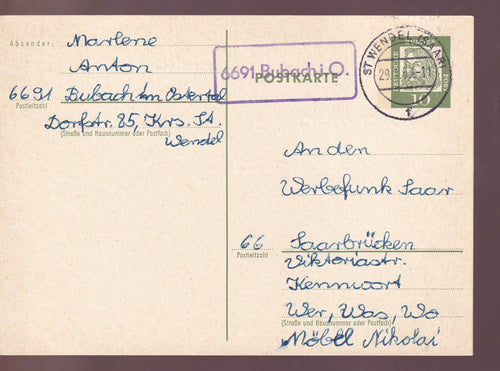 Absender:
Marlene
Anton
6691 Bubach im Ostertal
Postleitzahl
Dorfstr. 85, Krs. St.
(Straße und Hausnummer oder Postfach)
Wendel
6691 Bubach i O.
POSTKARTE
ST WENDEL (SAAR)
10
An den
Werbefunk Saar
66 Saarbrücken
Postleitzahl
Viktoriastr.
Kennwort
Wer, Was, Wo
(Straße und Hausnummer oder Postfach)
Möbel Nikolai